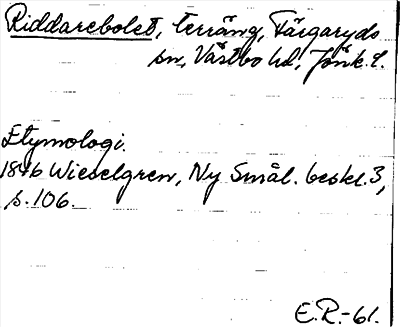 Riddarebolet, terräng, Färgaryds
sn, Västbo hd, Jönk. l.
Etymologi.
1846 Wieselgren, Ny Smål. beskr. 3,
s. 106.
E.R.-61.